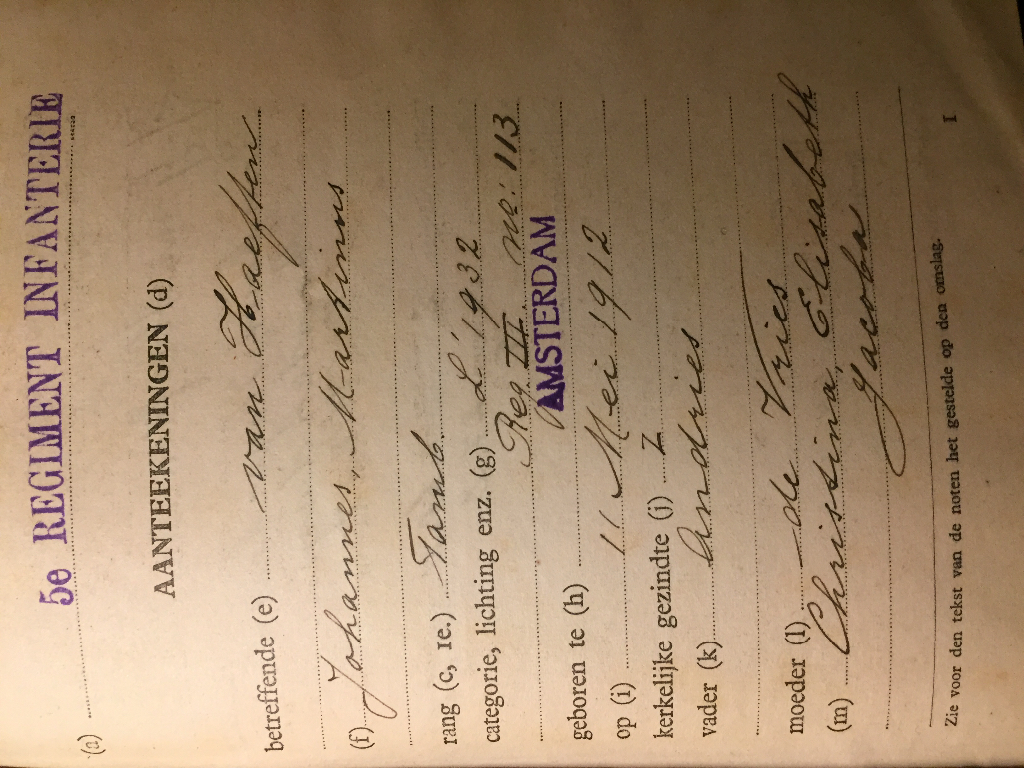 5e REGIMENT INFANTERIE
(a)
AANTEEKENINGEN (d)
betreffende (e) van Haeften
(f) Johannes, Martinus
rang (c, 1e.)
categorie, lichting enz. (g) L. 1932
Reg III no: 113
geboren te (h) AMSTERDAM
op (i) 11 Mei 1912
kerkelijke gezindte (j) Z
vader (k) Andries
moeder (l) de Vries
(m) Christina, Elisabeth
Jacoba
Zie voor den tekst van de noten het gestelde op den omslag.
I